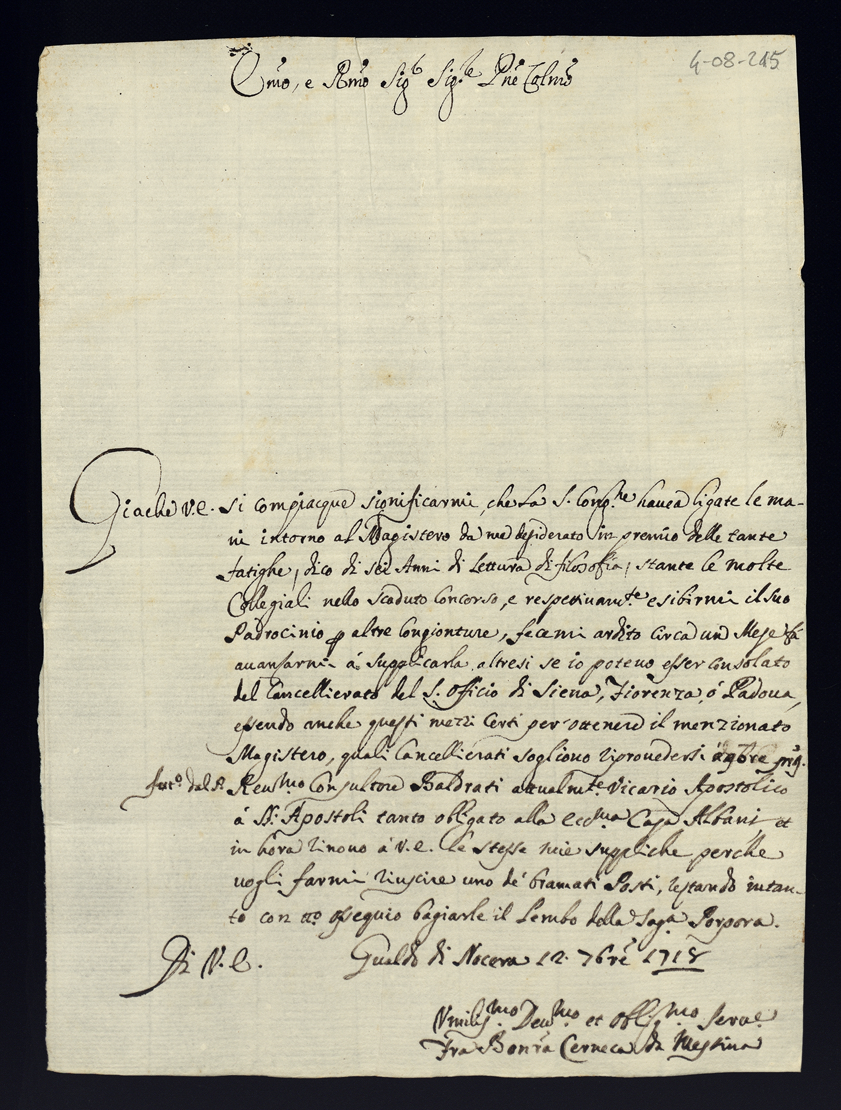 4-08-215
Emo, e Rmo Sigr Sig.re Pne Colmo
Giache V.E. si compiacque significarmi, che la S. Cong.ne havea ligate le ma-
ni intorno al Magistero da me desiderato in premio delle tante
fatighe, dico di sei Anni di Lettura di filosofia, stante le molte
Collegiali nello Scaduto Concorso, e respettivam.te esibirmi il suo
Padrocinio p altre Congionture, fecemi ardito circa un Mese fà
avansarmi à supplicarla altresi se io potevo esser consolato
del Cancellierato del S. Officio di Siena, Fiorenza, ó Padova,
essendo anche questi mezzi Certi per ottenere il menzionato
Magistero, quali Cancellierati sogliono riprovedersi
dal P. Reu.mo Consultore Baldrati attualm.te Vicario Apostolico
á SS. Apostoli tanto obligato alla ecc.ma Casa Albani, et
in hora rinovo á V.E. le stesse mie suppliche perche
vogli farmi riuscire uno de' bramati Posti, restando intan-
to con ogni ossequio bagiarle il Lembo della Sag.a Porpora.
Di V.E. Gualdo di Nocera 12. 7bre 1718
Vmiliss.mo Deu.mo et Oblig.mo Serve
Fra Bonra Cerneca da Messina